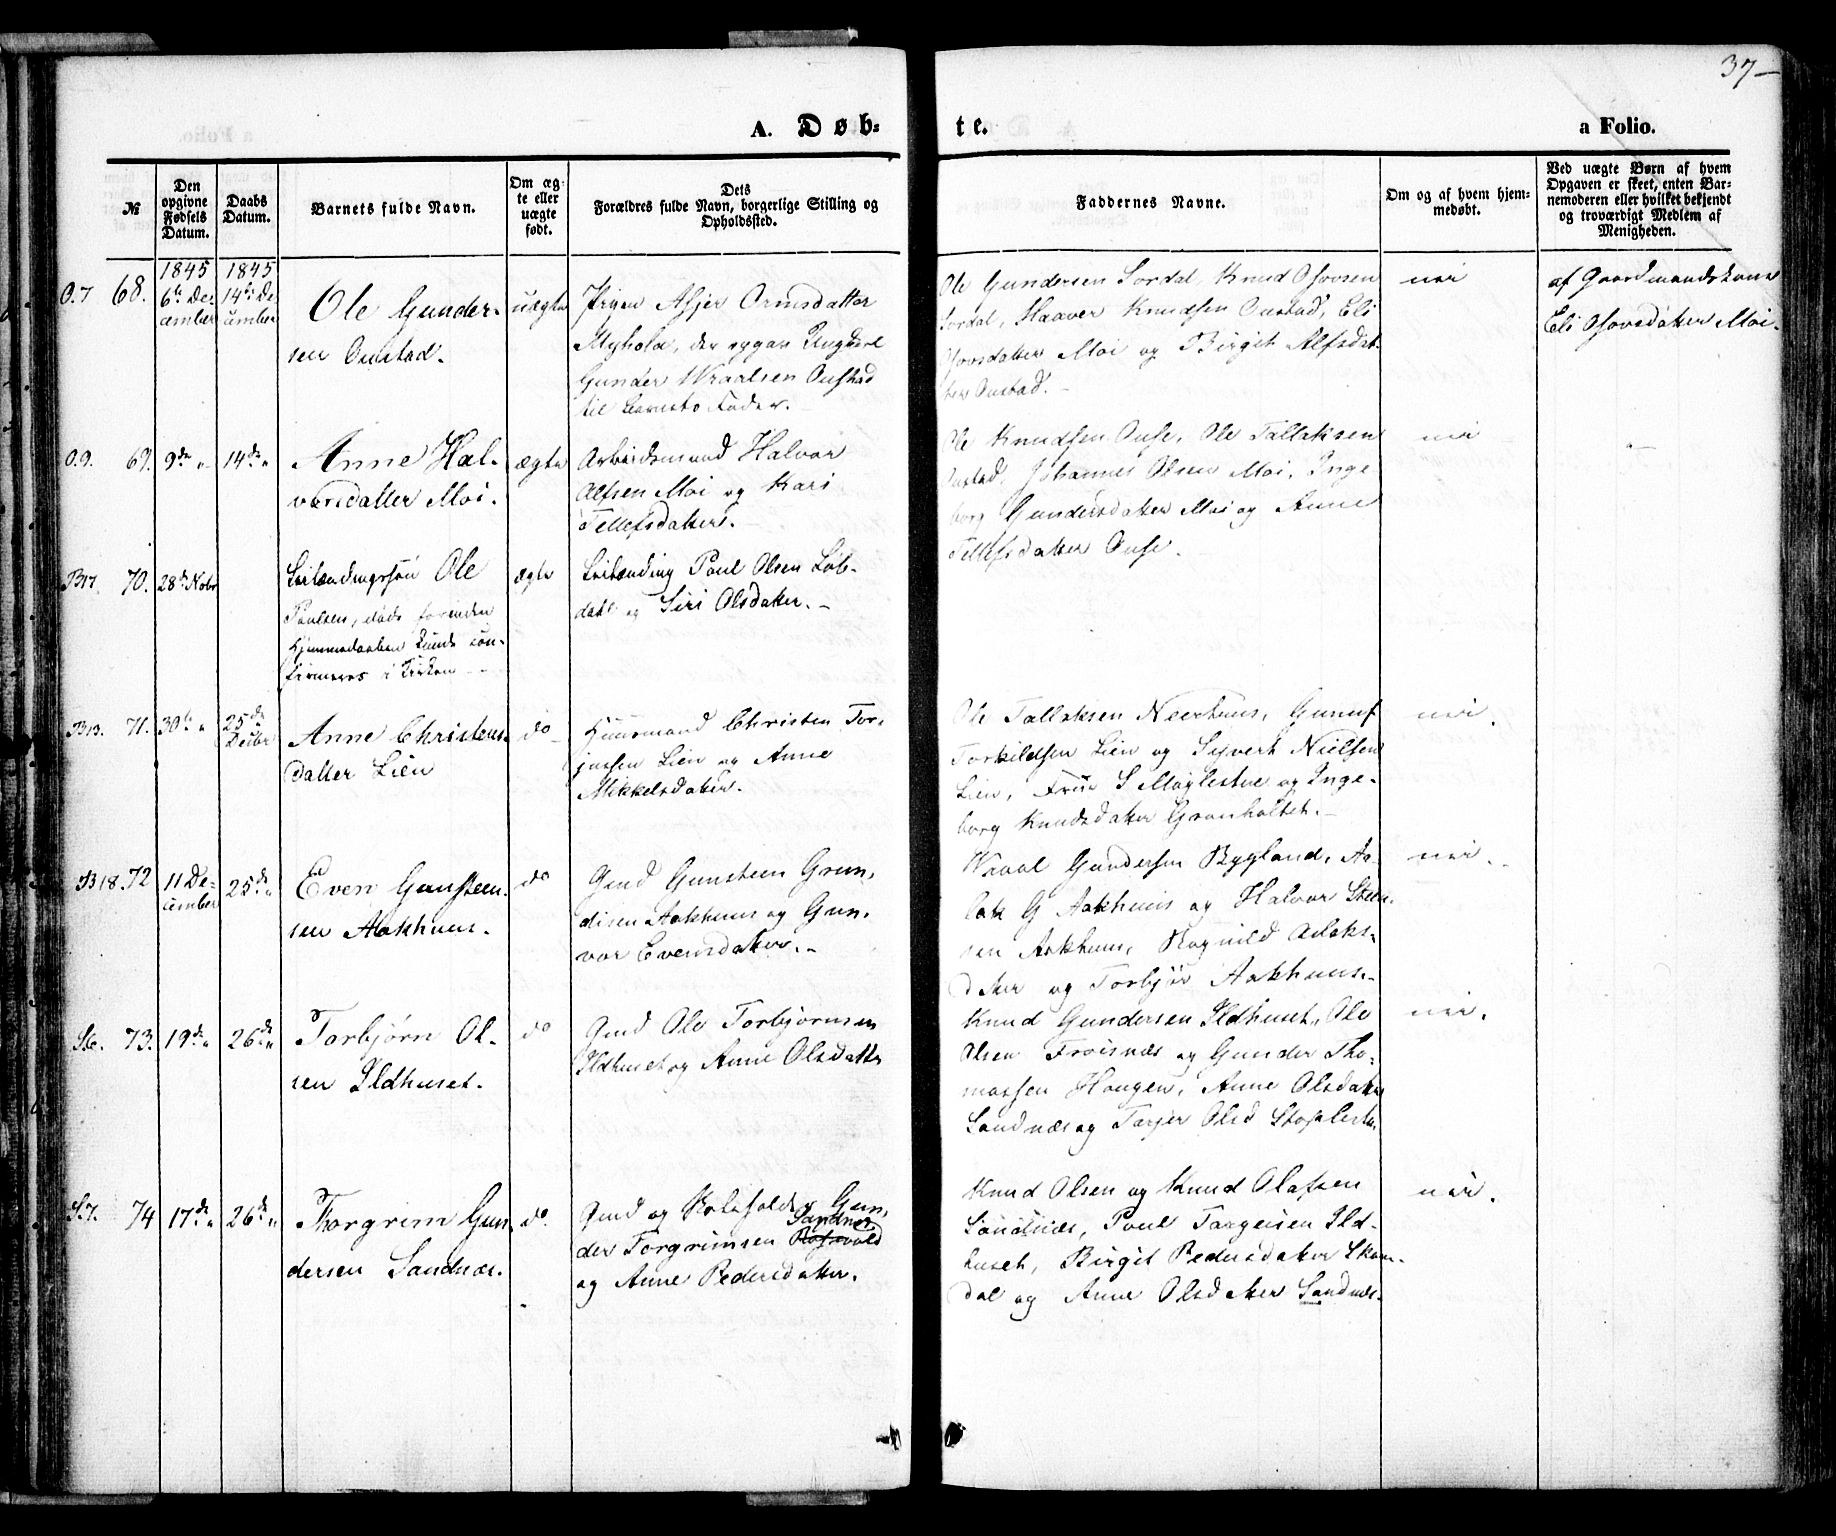 37-
A. Døb-
te.
a Folio.
№
Den opgivne Fødsels Datum.
Daabs Datum.
Barnets fulde Navn.
Om ægte eller uægte født.
Dets Forældres fulde Navn, borgerlige Stilling og Opholdssted.
Faddernes Navne.
Om og af hvem hjemmedøbt.
Ved uægte Børn af hvem Opgaven er skeet, enten Barnemoderen eller hvilket bekjendt og troværdigt Medlem af Menigheden.
O.7 68.
1845
6te De-
cember
1845
14de De
cember
Ole Gunder-
sen Oustad.
uægte
Pigen Asjer Ormsdatter
Myhola, der opgav Ungkarl
Gunder Wraalsen Oustad
til Barnets Fader.
Ole Gundersen Sordal, Knud Osovsen
Sordal, Haaver Knudsen Oustad, Eli
Osovsdatter Moi og Birgit Alfsdat-
ter Oustad.
nei
af Gaardmandskone
Eli Osovsdatter Moi.
O.9. 69.
9de "
14de "
Anne Hal-
vorsdatter Moi.
ægte
Arbeidsmand Halvor
Alfsen Moi og Kari
Tellefsdatter.
Ole Knudsen Ouse, Ole Tallaksen
Oustad, Johannes Olsen Moi, Inge
borg Gundersdatter Moi og Anne
Tellefsdatter Ouse.
nei
-
B17. 70.
28de Nobr
Leilændingssøn Ole
Paulsen, døde forinden
Hjemmedaaben kunde con-
firmeres i Kirken -
ægte
Leilænding Poul Olsen Lob-
dahl og Siri Olsdatter. -
B13. 71.
30te "
25de
Decbr
Anne Christens-
datter Lien
do
Huusmand Christen Tor-
jussen Lien og Anne
Mikkelsdatter.
Ole Tallaksen Neerhuus, Gunuf
Torkildsen Lien og Syvert Nielsen
Lien, Frue S Møglestue og Inge-
borg Knudsdatter Grønholtet. -
nei.
B18. 72
11 De-
cember
25de "
Even Gunsteen-
sen Aakhuus.
do
Gmd Gunsteen Grun-
disen Aakhuus og Gun-
vor Evensdatter. -
Wraal Gundersen Bygland, As-
lak G Aakhuus og Halvor Steen-
sen Aakhuus, Ragnild Aslaks-
datter og Torbjør Aakhuus.
nei.
S6. 73.
19de "
26de "
Torbjørn Ol-
sen Ildhuset.
do
Gmd Ole Torbjørnsen
Ildhuset og Anne Olsdatter
Knud Gundersen Ildhuset, Ole
Olsen Froisnæs og Gunder Tho-
massen Haugen, Anne Olsdatter
Sandnæs og Tarjer Olsd
nei.
S.7. 74
17de "
26de "
Thorgrim Gun-
dersen Sandnæs.
do.
Gmd og Gun-
der Torgrimsen Sandnæs
og Anne Pedersdatter.
Knud Olsen og Knud Olafsen
Sandnæs, Poul Targeisen Ild-
huset, Birgit Pedersdatter Skom-
dal og Anne Olsdatter Sandnæs.
nei.